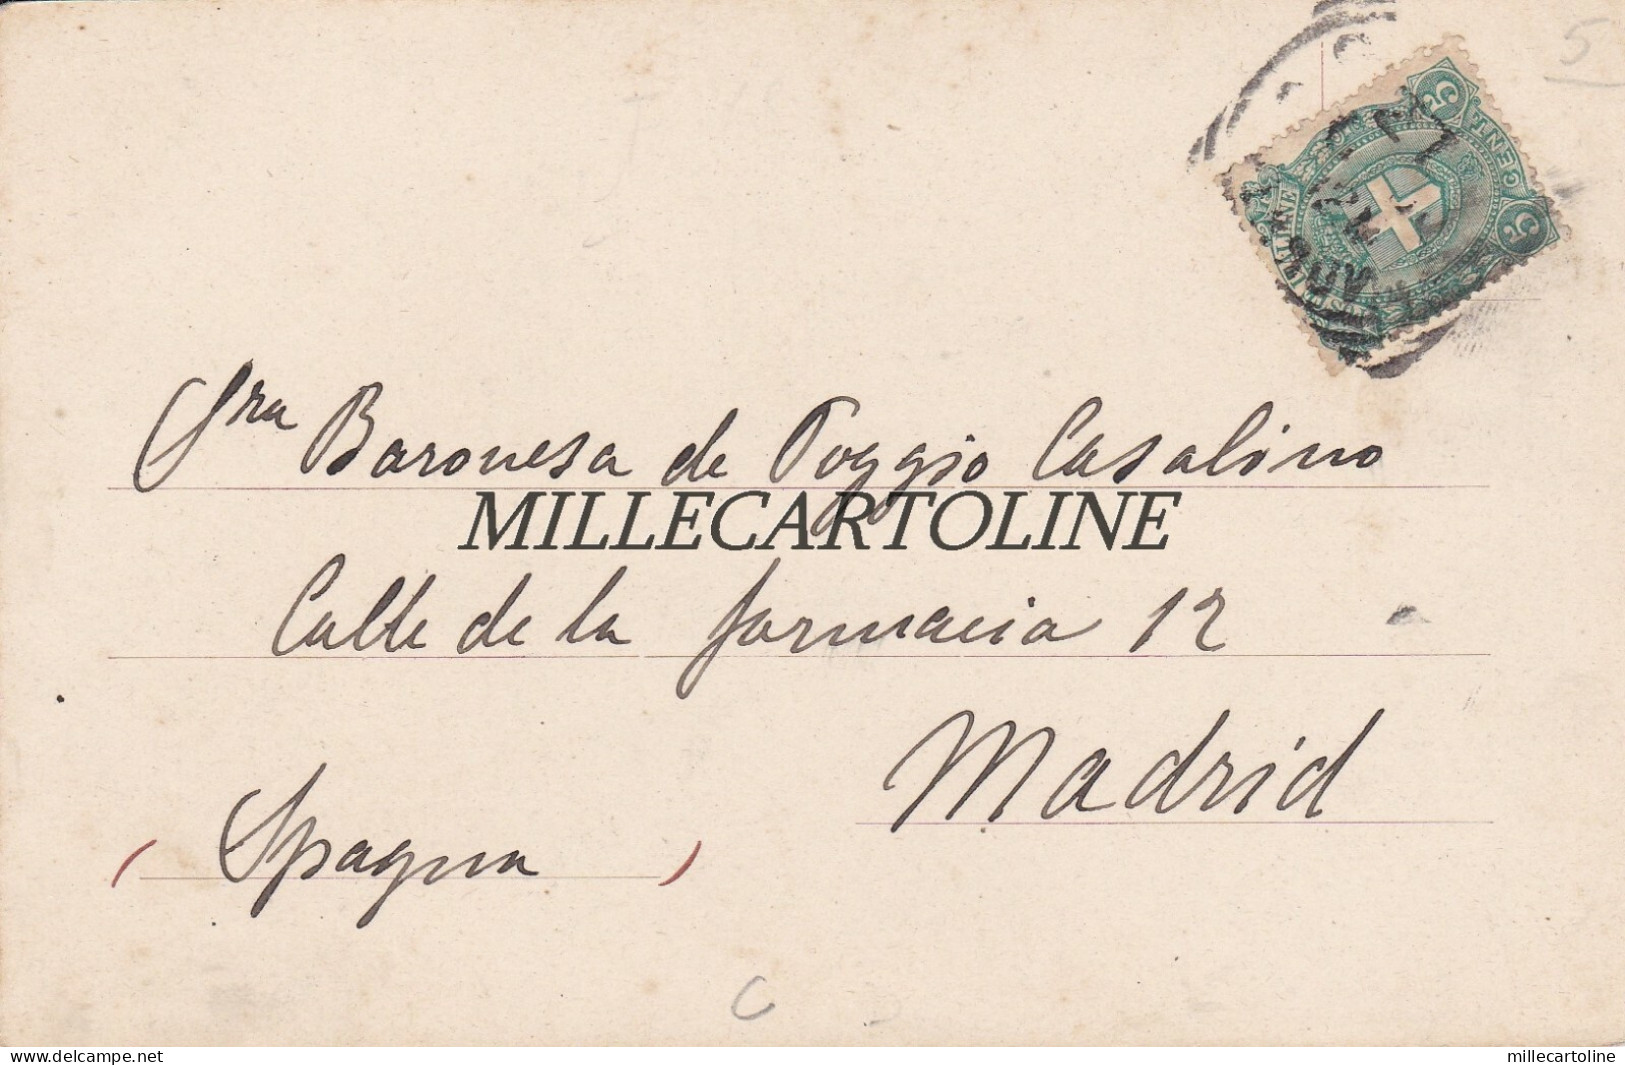 5
CENT. 5
5
Sra Baronesa de Poggio Casalino
MILLECARTOLINE
Calle de la farmacia 12
Madrid
( Spagna )
C
www.delcampe.net
millecartoline